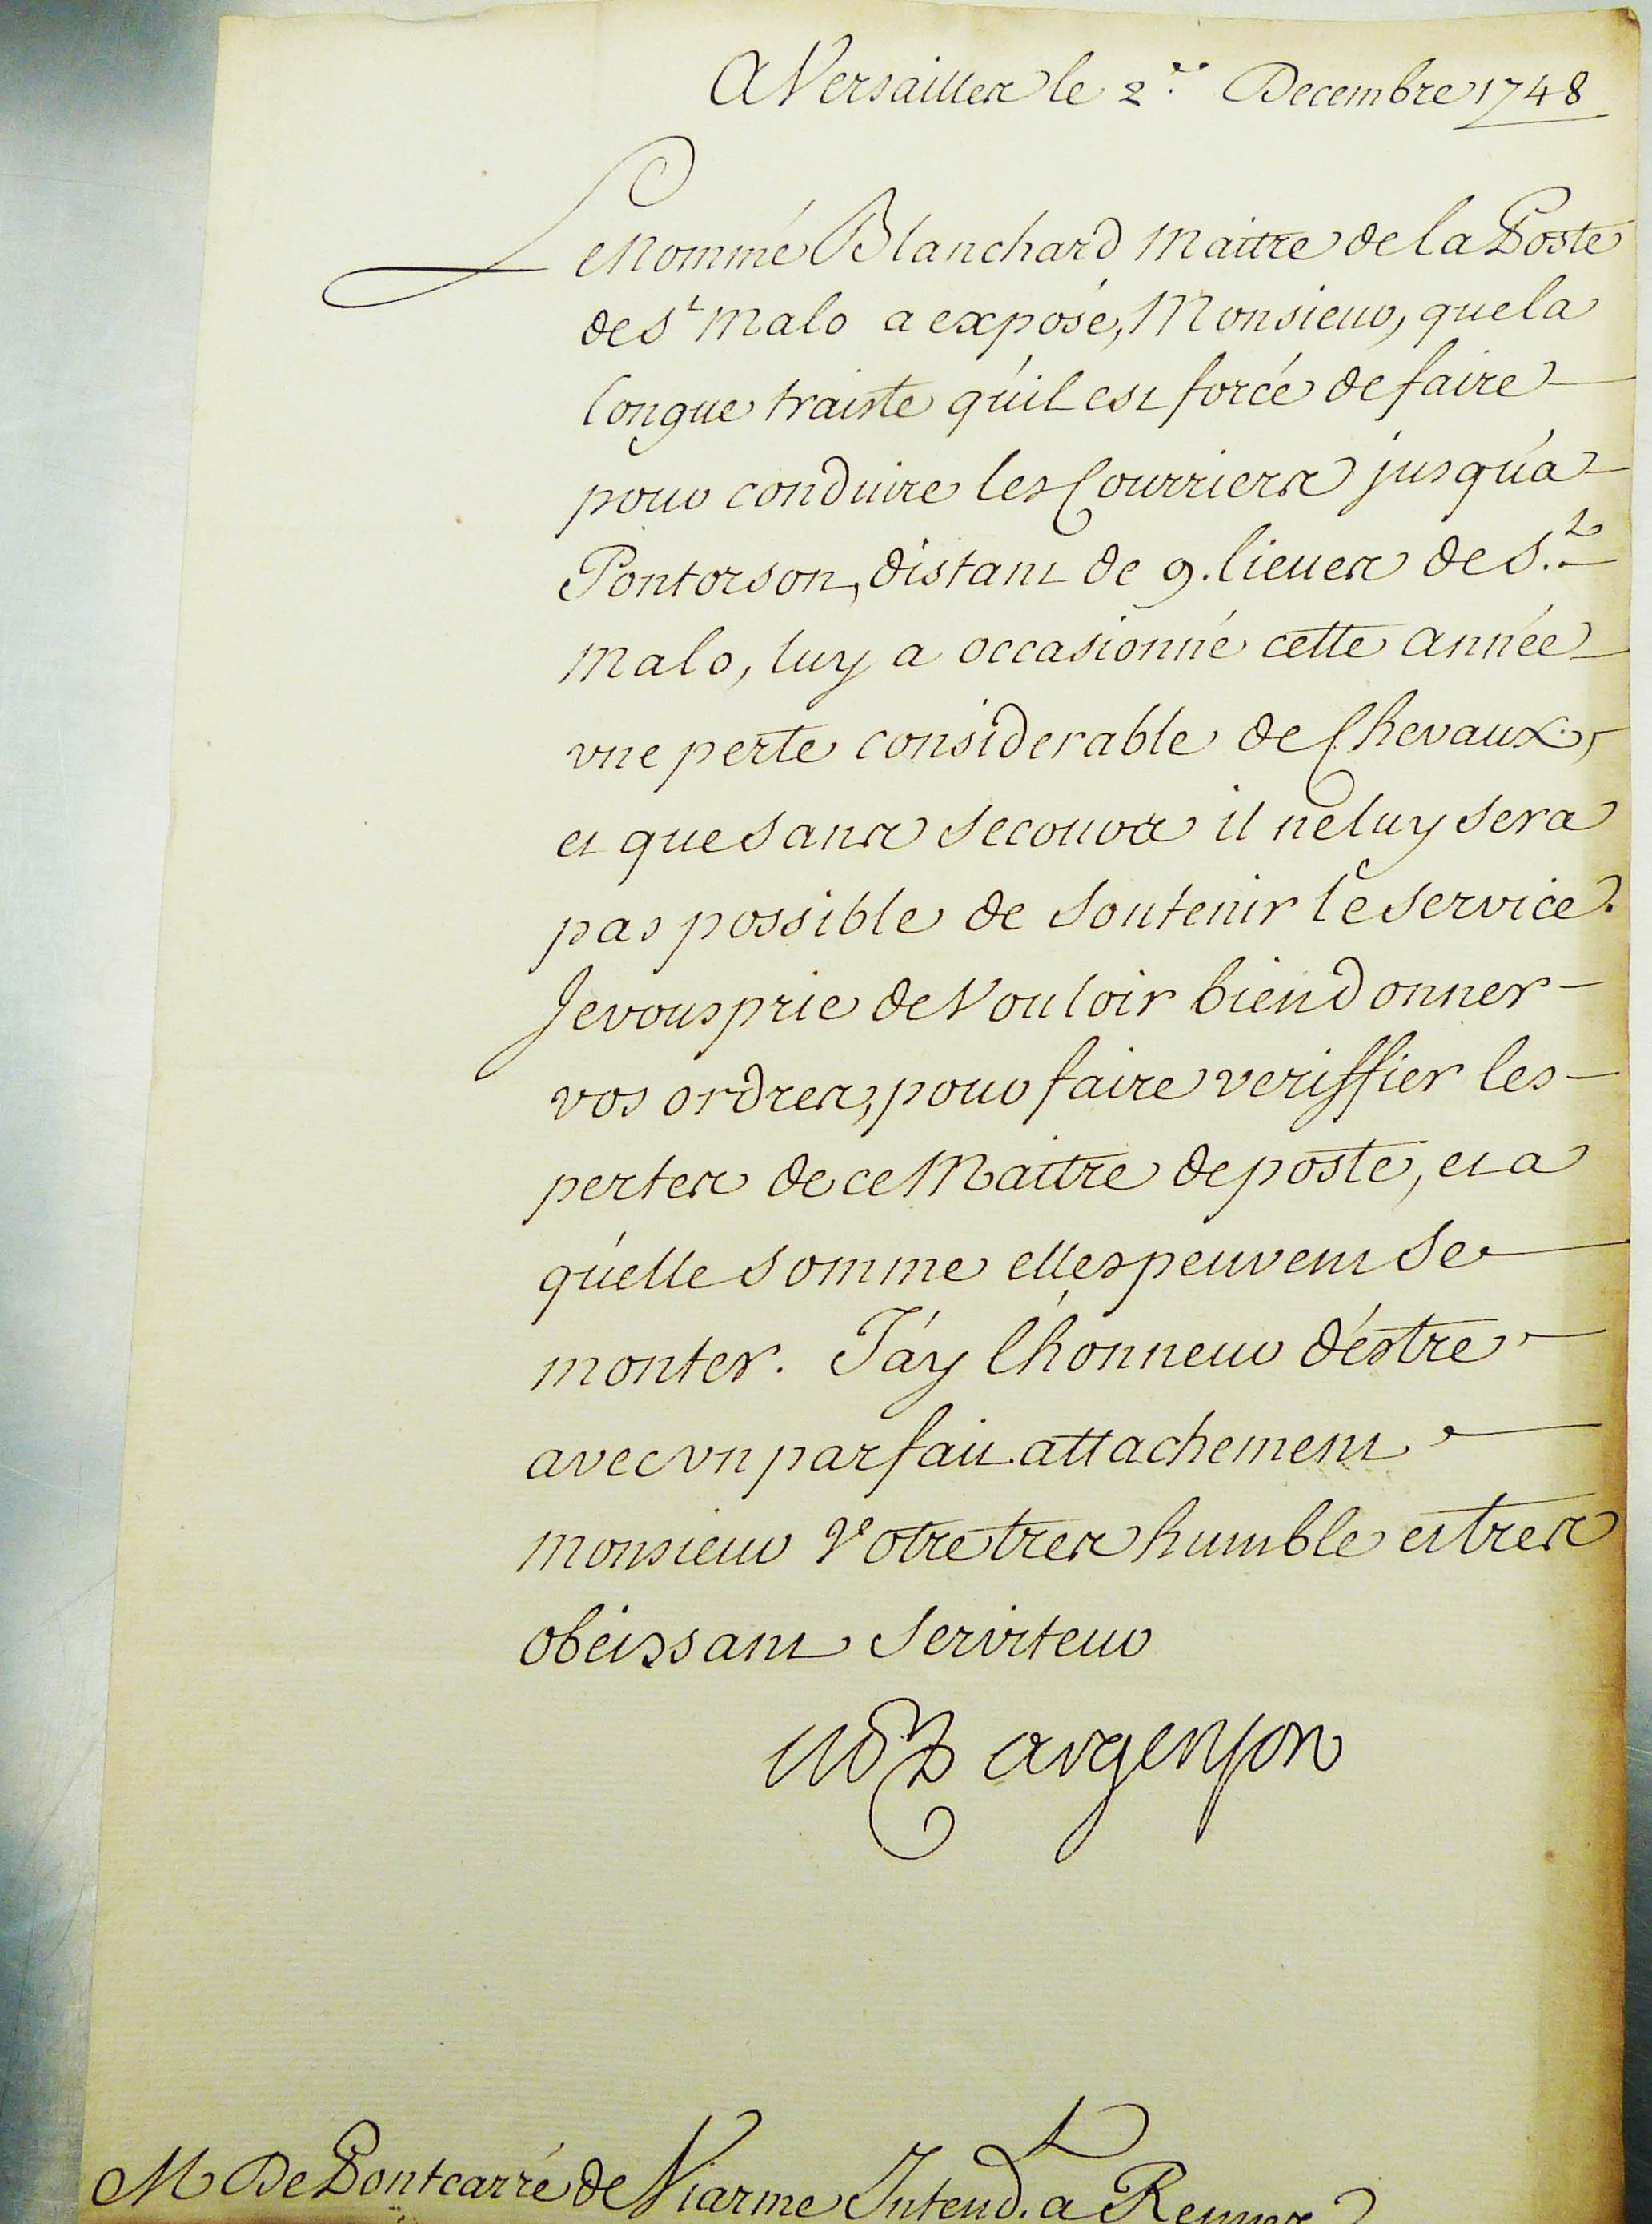 A Versailles le 2.e Decembre 1748
Le Nommé Blanchard Maitre de la Poste
de St Malo a exposé, Monsieur, que la
longue traiste qu'il est forcé de faire
pour conduire les Courriers jusqu'a
Pontorson, distant de 9. lieues de S.t
Malo, luy a occasionné cette année
vne perte considerable de Chevaux,
et que sans secours il ne luy sera
pas possible de soutenir le service.
Je vous prie de Vouloir bien donner
vos ordres, pour faire veriffier les
pertes de ce Maitre de poste, et a
qu'elle somme elles peuvent se
monter. J'ay l'honneur d'éstre
avec vn parfait attachement
Monsieur Votre tres humble et tres
obeissant Serviteur
M D argenson
M De Pontcarré de Viarme Intend.t a Rennes